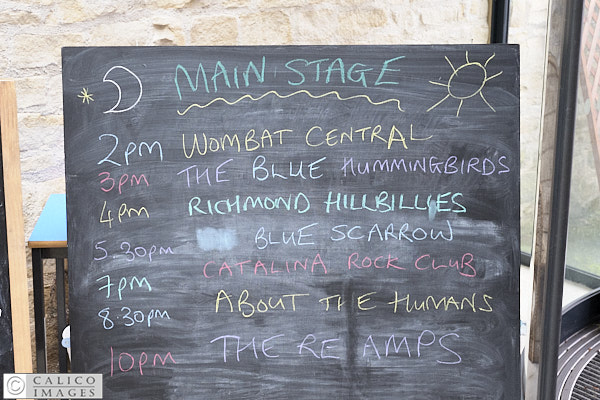 MAIN STAGE
2pm WOMBAT CENTRAL
3pm THE BLUE HUMMINGBIRDS
4pm RICHMOND HILLBILLIES
5.30pm BLUE SCARROW
7pm CATALINA ROCK CLUB
8.30pm ABOUT THE HUMANS
10pm THE RE AMPS
© CALICO IMAGES